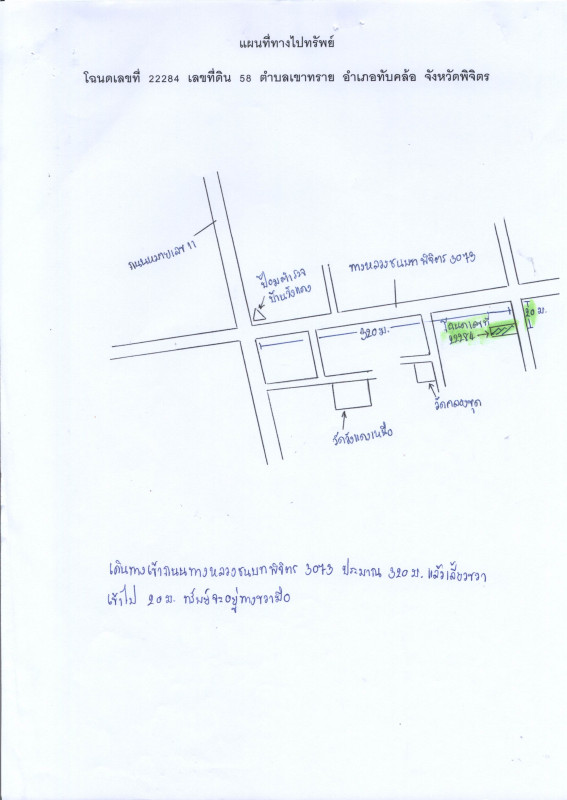 แผนที่ทางไปทรัพย์
โฉนดเลขที่ 22284 เลขที่ดิน 58 ตำบลเขาทราย อำเภอทับคล้อ จังหวัดพิจิตร
ถนนหมายเลข 11
ป้อมตำรวจ
บ้านวังแดง
ทางหลวงชนบท พิจิตร 3073
320 ม.
โฉนดเลขที่
22284
20 ม.
วัดวังแดงเหนือ
วัดคลองขุด
เดินทางเข้าถนนทางหลวงชนบทพิจิตร 3073 ประมาณ 320 ม. แล้วเลี้ยวขวา
เข้าไป 20 ม. ทรัพย์จะอยู่ทางขวามือ